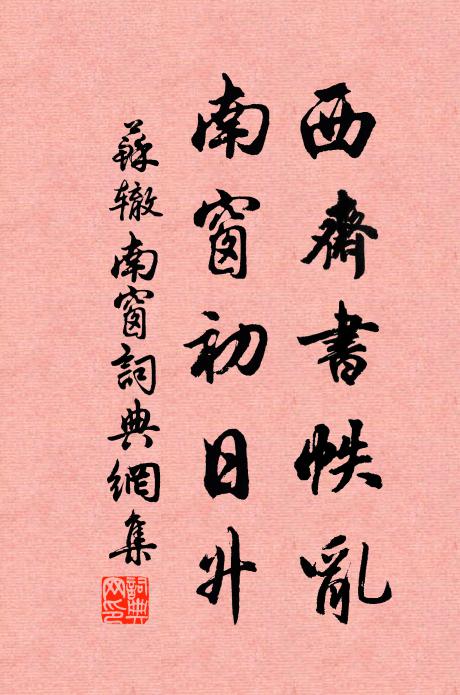 西齋書帙亂
南窗初日升
蘇辙南窗詞典網集
詞典網印